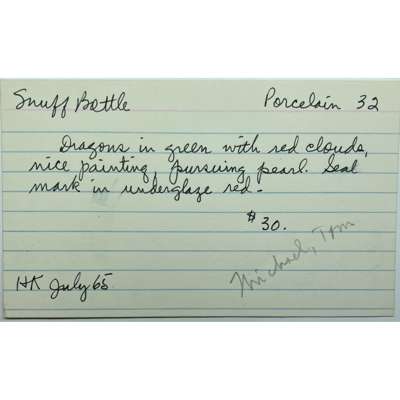 Snuff Bottle Porcelain 32
Dragons in green with red clouds,
nice painting, pursuing pearl. Seal
mark in underglaze red.
$30.
Michael, Tom
HK July 65